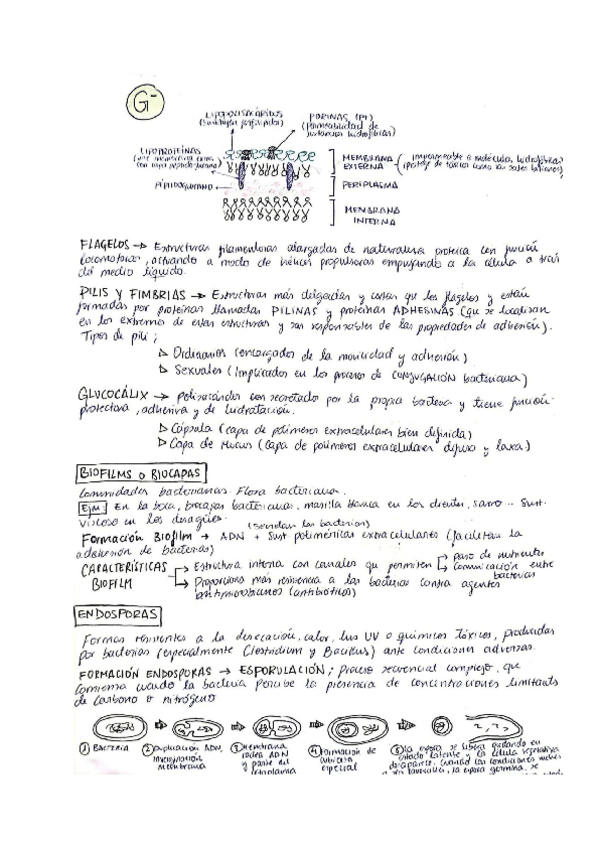 G-
LIPOPOLISACÁRIDOS
PORINAS (Pt)
(Permeabilidad de
sustancias hidrofílicas)
LIPOPROTEÍNAS
PEPTIDOGLICANO
MEMBRANA EXTERNA
PERIPLASMA
MEMBRANA INTERNA
FLAGELOS → Estructuras filamentosas alargadas de naturaleza proteica con función
locomotora, actuando a modo de hélices propulsoras empujando a la célula a través
del medio líquido.
PILIS Y FIMBRIAS → Estructuras más delgadas y cortas que los flagelos y están
formadas por proteínas llamadas PILINAS y proteínas ADHESINAS (que se localizan
en los extremos de estas estructuras y son responsables de las propiedades de adhesión).
Tipos de pili;
Ordinarios (encargados de la movilidad y adhesión)
Sexuales (implicados en los procesos de CONJUGACIÓN bacteriana)
GLUCOCÁLIX → polisacáridos son secretado por la propia bacteria y tiene función
protectora, adhesiva y de hidratación.
Cápsula (capa de polímeros extracelulares bien definida)
Capa de Mucus (capa de polímeros extracelulares difusa y laxa)
BIOFILMS O BIOCAPAS
Comunidades bacterianas. Flora bacteriana.
Ejm: En la boca, biocapas bacterianas, mancha blanca en los dientes, sarro... Sust.
viscosa en los desagües.
(secretan las bacterias)
Formación Biofilm → ADN + Sust poliméricas extracelulares (facilitan la
adhesión de bacterias)
CARACTERÍSTICAS BIOFILM
→ Estructura interna con canales que permiten
→ paso de nutrientes
→ comunicación entre bacterias
→ Proporciona más resistencia a las bacterias contra agentes
antimicrobianos (antibióticos)
ENDOSPORAS
Formas resistentes a la desecación, calor, luz UV o químicos tóxicos, producidas
por bacterias (especialmente Clostridium y Bacillus) ante condiciones adversas.
FORMACIÓN ENDOSPORAS → ESPORULACIÓN; proceso secuencial complejo, que
comienza cuando la bacteria percibe la presencia de concentraciones limitantes
de carbono o nitrógeno
① BACTERIA
② Duplicación ADN, invaginación membrana
③ Membrana rodea ADN y parte del citoplasma
④ Formación de cubierta especial
⑤ La espora se libera quedando en
estado latente y la célula vegetativa
desaparece. Cuando las condiciones vuelven
a ser favorables, la espora germina, se